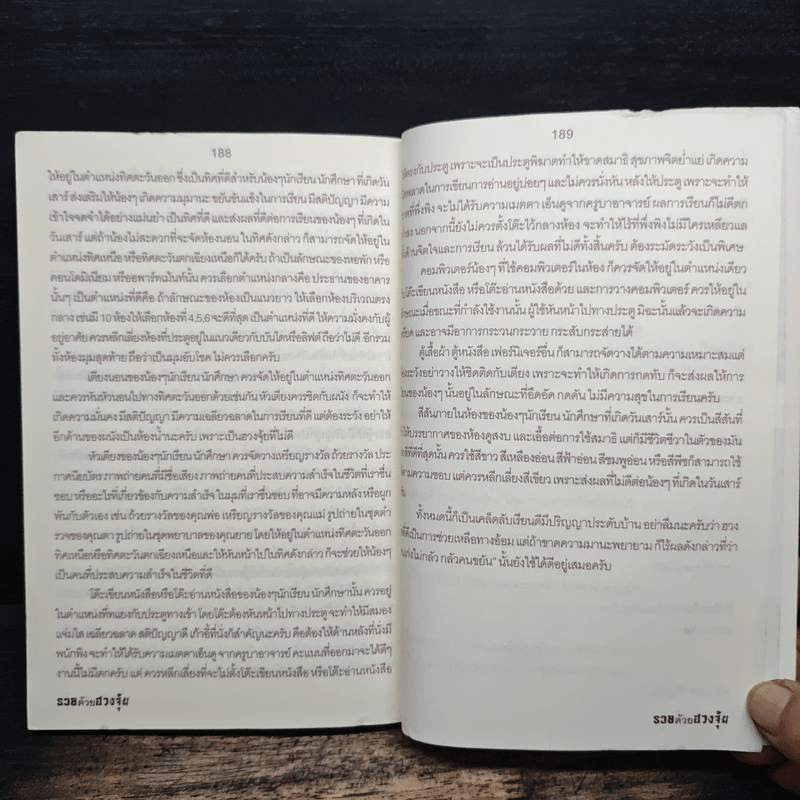 188
ให้อยู่ในตำแหน่งทิศตะวันออก ซึ่งเป็นทิศที่ดีสำหรับน้องๆนักเรียน นักศึกษา ที่เกิดวัน
เสาร์ ส่งเสริมให้น้องๆ เกิดความมุมานะ ขยันขันแข็งในการเรียน มีสติปัญญา มีความ
เข้าใจจดจำได้อย่างแม่นยำ เป็นทิศที่ดี และส่งผลที่ดีต่อการเรียนของน้องๆ ที่เกิดใน
วันเสาร์ แต่ถ้าน้องไม่สะดวกที่จะจัดห้องนอน ในทิศดังกล่าว ก็สามารถจัดให้อยู่ใน
ตำแหน่งทิศเหนือ หรือทิศตะวันตกเฉียงเหนือก็ได้ครับ ถ้าเป็นลักษณะของหอพัก หรือ
คอนโดมิเนียม หรืออพาร์ทเม้นท์นั้น ควรเลือกตำแหน่งกลางคือ ประธานของอาคาร
นั้นๆ เป็นตำแหน่งที่ดีคือ ถ้าลักษณะของห้องเป็นแนวยาว ให้เลือกห้องบริเวณตรง
กลาง เช่นมี 10 ห้องให้เลือกห้องที่ 4,5,6 จะดีที่สุด เป็นตำแหน่งที่ดี ให้ความมั่งคงกับผู้
อยู่อาศัย ควรหลีกเลี่ยงห้องที่ประตูอยู่ในแนวเดียวกับบันไดหรือลิฟต์ ถือว่าไม่ดี อีกรวม
ทั้งห้องมุมสุดท้าย ถือว่าเป็นมุมอับโชค ไม่ควรเลือกครับ
เตียงนอนของน้องๆนักเรียน นักศึกษา ควรจัดให้อยู่ในตำแหน่งทิศตะวันออก
และควรหันหัวนอนไปทางทิศตะวันออกด้วยเช่นกัน หัวเตียงควรชิดกับผนัง ก็จะทำให้
เกิดความมั่นคง มีสติปัญญา มีความเฉลียวฉลาดในการที่ดี แต่ต้องระวัง อย่าให้
อีกด้านของผนังเป็นห้องน้ำนะครับ เพราะเป็นฮวงจุ้ยที่ไม่ดี
หัวเตียงของน้องๆนักเรียน นักศึกษา ควรจัดวางเหรียญรางวัล ถ้วยรางวัล ประ
กาศนียบัตร ภาพถ่ายคนที่มีชื่อเสียง ภาพถ่ายคนที่ประสบความสำเร็จ ในชีวิตที่เราชื่น
ชอบ หรืออะไรที่เกี่ยวข้องกับความสำเร็จ ในมุมที่เราชื่นชอบ ที่อาจมีความหลัง หรือผูก
พันกับตัวเอง เช่น ถ้วยรางวัลของคุณพ่อ เหรียญรางวัลของคุณแม่ รูปถ่ายในชุดตำ
รวจของคุณตา รูปถ่ายในชุดพยาบาลของคุณยาย โดยให้อยู่ในตำแหน่งทิศตะวันออก
ทิศเหนือหรือทิศตะวันตกเฉียงเหนือและให้หันหน้าไปในทิศดังกล่าว ก็จะช่วยให้น้องๆ
เป็นคนที่ประสบความสำเร็จในชีวิตที่ดี
โต๊ะเขียนหนังสือหรือโต๊ะอ่านหนังสือของน้องๆนักเรียน นักศึกษานั้น ควรอยู่
ในตำแหน่งที่ทแยงกับประตูทางเข้า โดยโต๊ะต้องหันหน้าไปทางประตู จะทำให้มีสมอง
แจ่มใส เฉลียวฉลาด สติปัญญาดี เก้าอี้ที่นั่งก็สำคัญนะครับ คือต้องให้ด้านหลังที่นั่งมี
พนักพิง จะทำให้ได้รับความเมตตาเอ็นดู จากครูบาอาจารย์ คะแนนที่ออกมาจะได้ดีๆ
งานนี้ไม่มีตกครับ แต่ ควรหลีกเลี่ยงที่จะไม่ตั้งโต๊ะเขียนหนังสือ หรือโต๊ะอ่านหนังสือ
รวยด้วยฮวงจุ้ย
189
ตรงกับประตู เพราะจะเป็นประตูพิฆาตทำให้ขาดสมาธิ สุขภาพจิตย่ำแย่ เกิดความ
พลาดในการเขียนการอ่านอยู่บ่อยๆ และไม่ควรนั่งหัน หลังให้ประตู เพราะจะทำให้
ที่พึ่งพิง จะไม่ได้รับความเมตตา เอ็นดูจากครูบาอาจารย์ ผลการเรียนก็ไม่ดีตก
ลง นอกจากนี้ยังไม่ควรตั้งโต๊ะไว้กลางห้อง จะทำให้ไร้ที่พึ่งพิงไม่มีใครเหลียวแล
ด้านจิตใจและการเรียน ล้วนได้รับผลที่ไม่ดีทั้งสิ้นครับ ต้องระมัดระวังเป็นพิเศษ
คอมพิวเตอร์น้องๆ ที่ใช้คอมพิวเตอร์ในห้อง ก็ควรจัดให้อยู่ในตำแหน่งเดียว
โต๊ะเขียนหนังสือ หรือโต๊ะอ่านหนังสือด้วย และการวางคอมพิวเตอร์ ควรให้อยู่ใน
ลักษณะเมื่อขณะที่กำลังใช้งานนั้น ผู้ใช้หันหน้าไปทางประตู มิฉะนั้นแล้วจะเกิดความ
เครียด และอาจมีอาการกระวนกระวาย กระสับกระส่ายได้
ตู้เสื้อผ้า ตู้หนังสือ เฟอร์นิเจอร์อื่น ก็สามารถจัดวางได้ตามความเหมาะสมแต่
ระวังอย่าวางให้ชิดติดกับเตียง เพราะจะทำให้เกิดการกดทับ ก็จะส่งผลให้การ
เรียนของน้องๆ นั้นอยู่ในลักษณะที่อึดอัด กดดัน ไม่มีความสุขในการเรียนครับ
สีสันภายในห้องของน้องๆนักเรียน นักศึกษาที่เกิดวันเสาร์นั้น ควรเป็นสีสันที่
ให้บรรยากาศของห้องดูสงบ และเอื้อต่อการใช้สมาธิ แต่ก็มีชีวิตชีวาในตัวของมัน
สีที่ดีที่สุดนั้น ควรใช้สีขาว สีเหลืองอ่อน สีฟ้าอ่อน สีชมพูอ่อน หรือสีพีชก็สามารถใช้
ตามความชอบ แต่ควรหลีกเลี่ยงสีเขียว เพราะส่งผลที่ไม่ดีต่อน้องๆ ที่เกิดในวันเสาร์
ทั้งหมดนี้ก็เป็นเคล็ดลับเรียนดีมีปริญญาประดับบ้าน อย่าลืมนะครับว่า ฮวง
ที่ดีเป็นการช่วยเหลือทางอ้อม แต่ถ้าขาดความมานะพยายาม ก็ไร้ผลดังกล่าวที่ว่า
เก่งไม่กลัว กลัวคนขยัน" นั้นยังใช้ได้ดีอยู่เสมอครับ
รวยด้วยฮวงจุ้ย